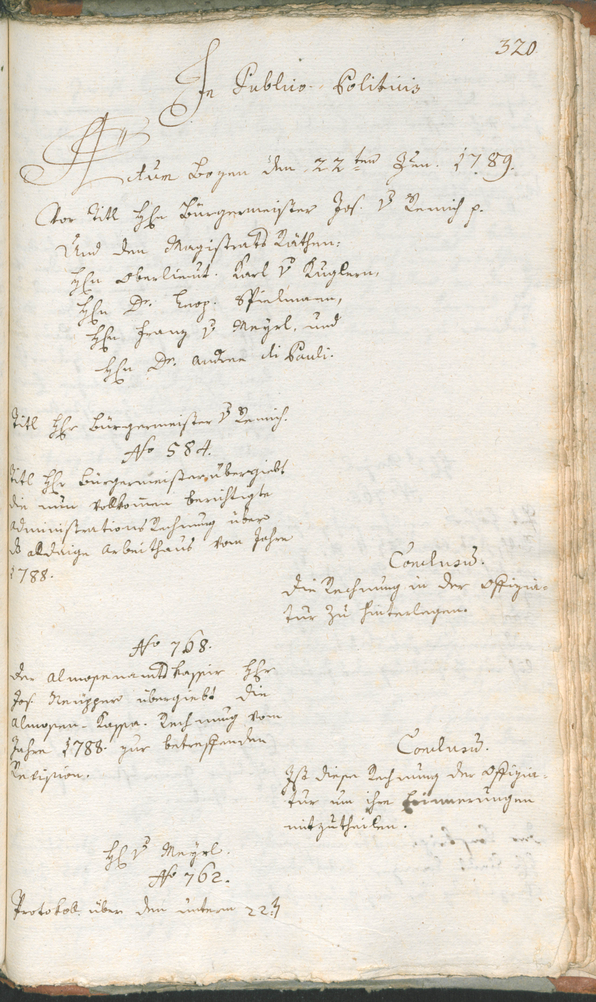 320
In Publico-Politicis
Actum Bozen den 22ten Jun. 1789.
Cor Titl Hhn Bürgermeister Jos. v Remich p.
Und den Magistrats Räthen:
Hhn Oberlieut. Karl v Kuglern,
Hhn Dr. Leop. Spielmann,
Hhn Franz v Meyrl, und
Hhn Dr. Andre di Pauli.
Titl Hhr Bürgermeister v Remich.
No 584.
Titl Hhr Bürgermeister übergiebt
die nun vollkommen berichtigte
Administrations Rechnung über
das alldaige Arbeithaus vom Jahre
1788.
Conclusum.
Die Rechnung in der Offizia-
tur zu hinterlegen.
No 768.
Der Almosenamts Kassir Hhr
Jos. Neupper übergiebt die
Almosen-Kassa-Rechnung vom
Jahre 1788 zur betreffenden
Revision.
Conclusum.
Ist diese Rechnung der Offizia-
tur um ihre Erinnerungen
mitzutheilen.
Hh v Meyrl.
No 762.
Protokoll über den unterm 22t